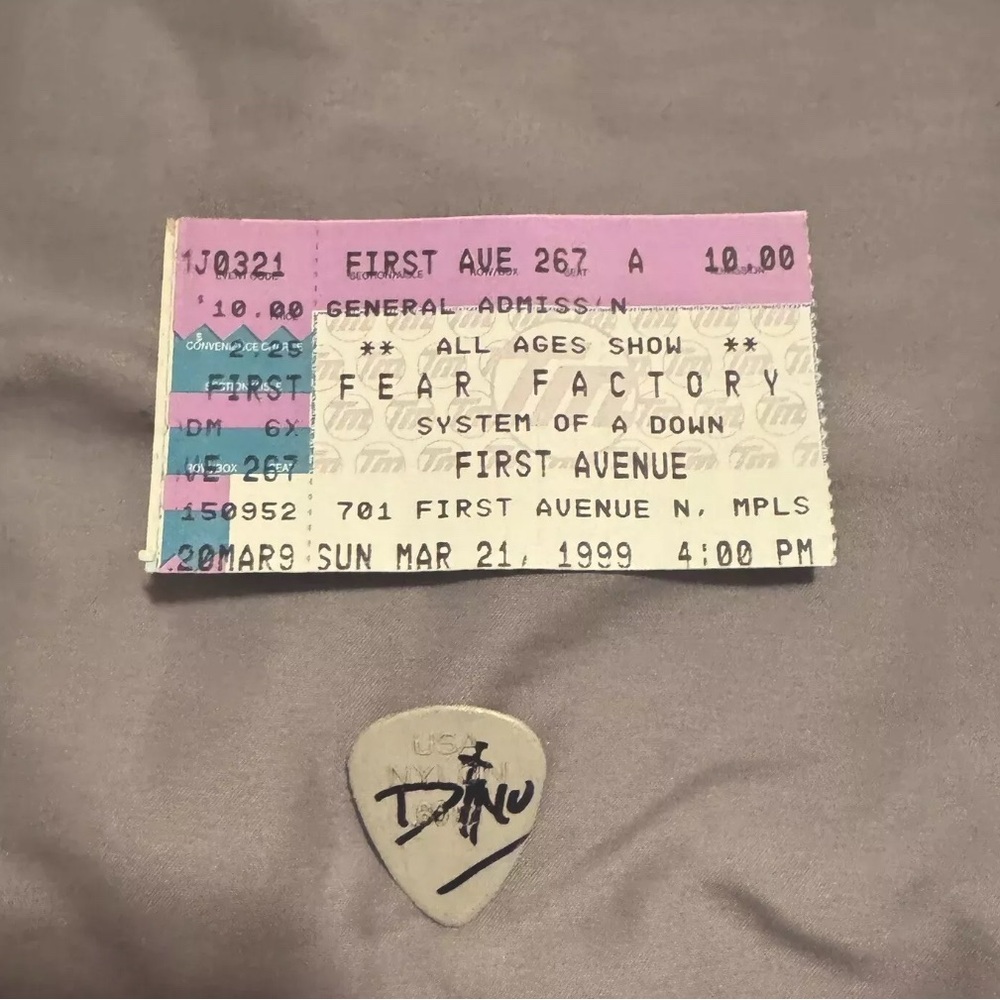 1J0321 FIRST AVE 267 A 10.00
EVENT CODE SECTION/AISLE ROW/BOX SEAT ADMISSION
$ 10.00 GENERAL ADMISS N
PRICE
$ 2.25 ** ALL AGES SHOW **
CONVENIENCE CHARGE
FIRST FEAR FACTORY
SECTION/AISLE
DM 6X SYSTEM OF A DOWN
VE 267 FIRST AVENUE
ROW/BOX SEAT
150952 701 FIRST AVENUE N. MPLS
20MAR9 SUN MAR 21, 1999 4:00 PM
Tm
USA
NYLON
DINO